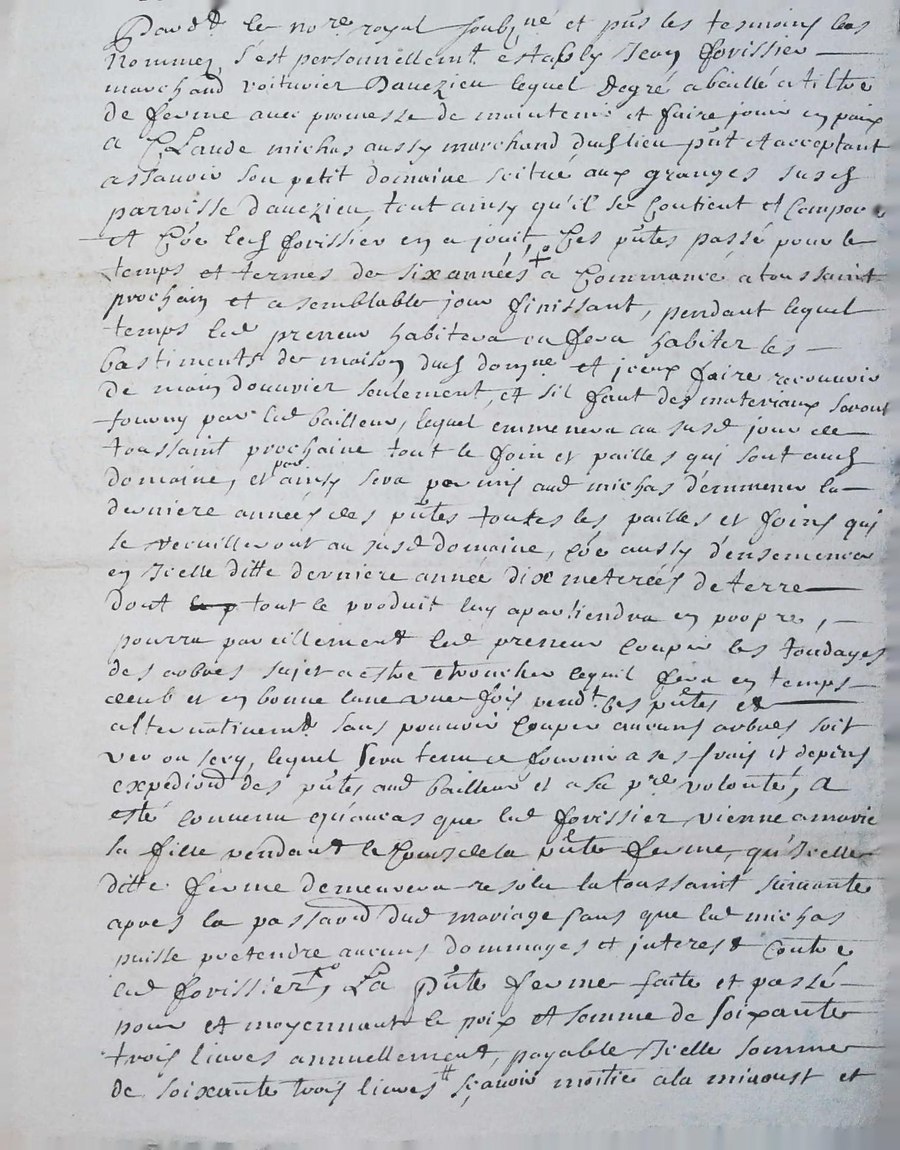 Pard.t le no.re royal soubz.né et pñs les tesmoins bas
nommez, s'est personnellem.t estably Jean fforissier
marchand voiturier Dauezieu lequel degré a baillé a tiltre
de ferme auec promesse de maintenir et faire jouir en paix
a Claude michas aussy marchand dud lieu pñt et acceptant
assauoir son petit domaine scitué aux granges susd
parroisse dauezieu, tout ainsy qu'il se Contient et Compore
et Cõe led fforissier en a jouit, Ces pñtes passé pour le
temps et termes de six années + a Commancé a toussaint
prochain et a semblable jour finissant, pendant lequel
temps led preneur habitera ou fera habiter les
bastiments de maison dud domne et jceux faire recouurir
de main douurier seulement, et sil faut des materiaux seront
fourny par led bailleur, lequel emmenera au susd jour de
toussaint prochaine tout le foin et pailles qui sont aud
domaine, et par ainsy sera permis aud michas d'emmener la
derniere années des pñtes toutes les pailles et foins qui
se recuilleront au susd domaine, cõe aussy d'ensemencer
en Jcelle ditte derniere année dix meterées de terre
dont le p tout le produit luy apartiendra en propre,
pourra pareillement led preneur couper les tondages
des arbres sujet a estre etroncher lequil fera en temps
deub et en bonne lune une fois pend.t Ces pñtes et
alternatiuem.t sans pouuoir Couper aucuns arbres soit
ver ou secq, lequel sera tenu de fournir a ses frais et depens
expediõn des pñtes aud bailleur et a sa p.re volonté, A
esté conuenu qu'aucas que led fforissier vienne a marie
sa fille pendant le Cours de la pñte ferme, qu'Jcelle
ditte ferme demeurera resolue la toussaint suiuante
apres la passation dud mariage sans que led michas
puisse pretendre aucuns dommages et jnterest Contre
led fforissier, La pñte ferme faite et passé
pour et moyennant le prix et somme de soixante
trois liures annuellement, payable Jcelle somme
de soixante trois liures scauoir moitié a la mioust et